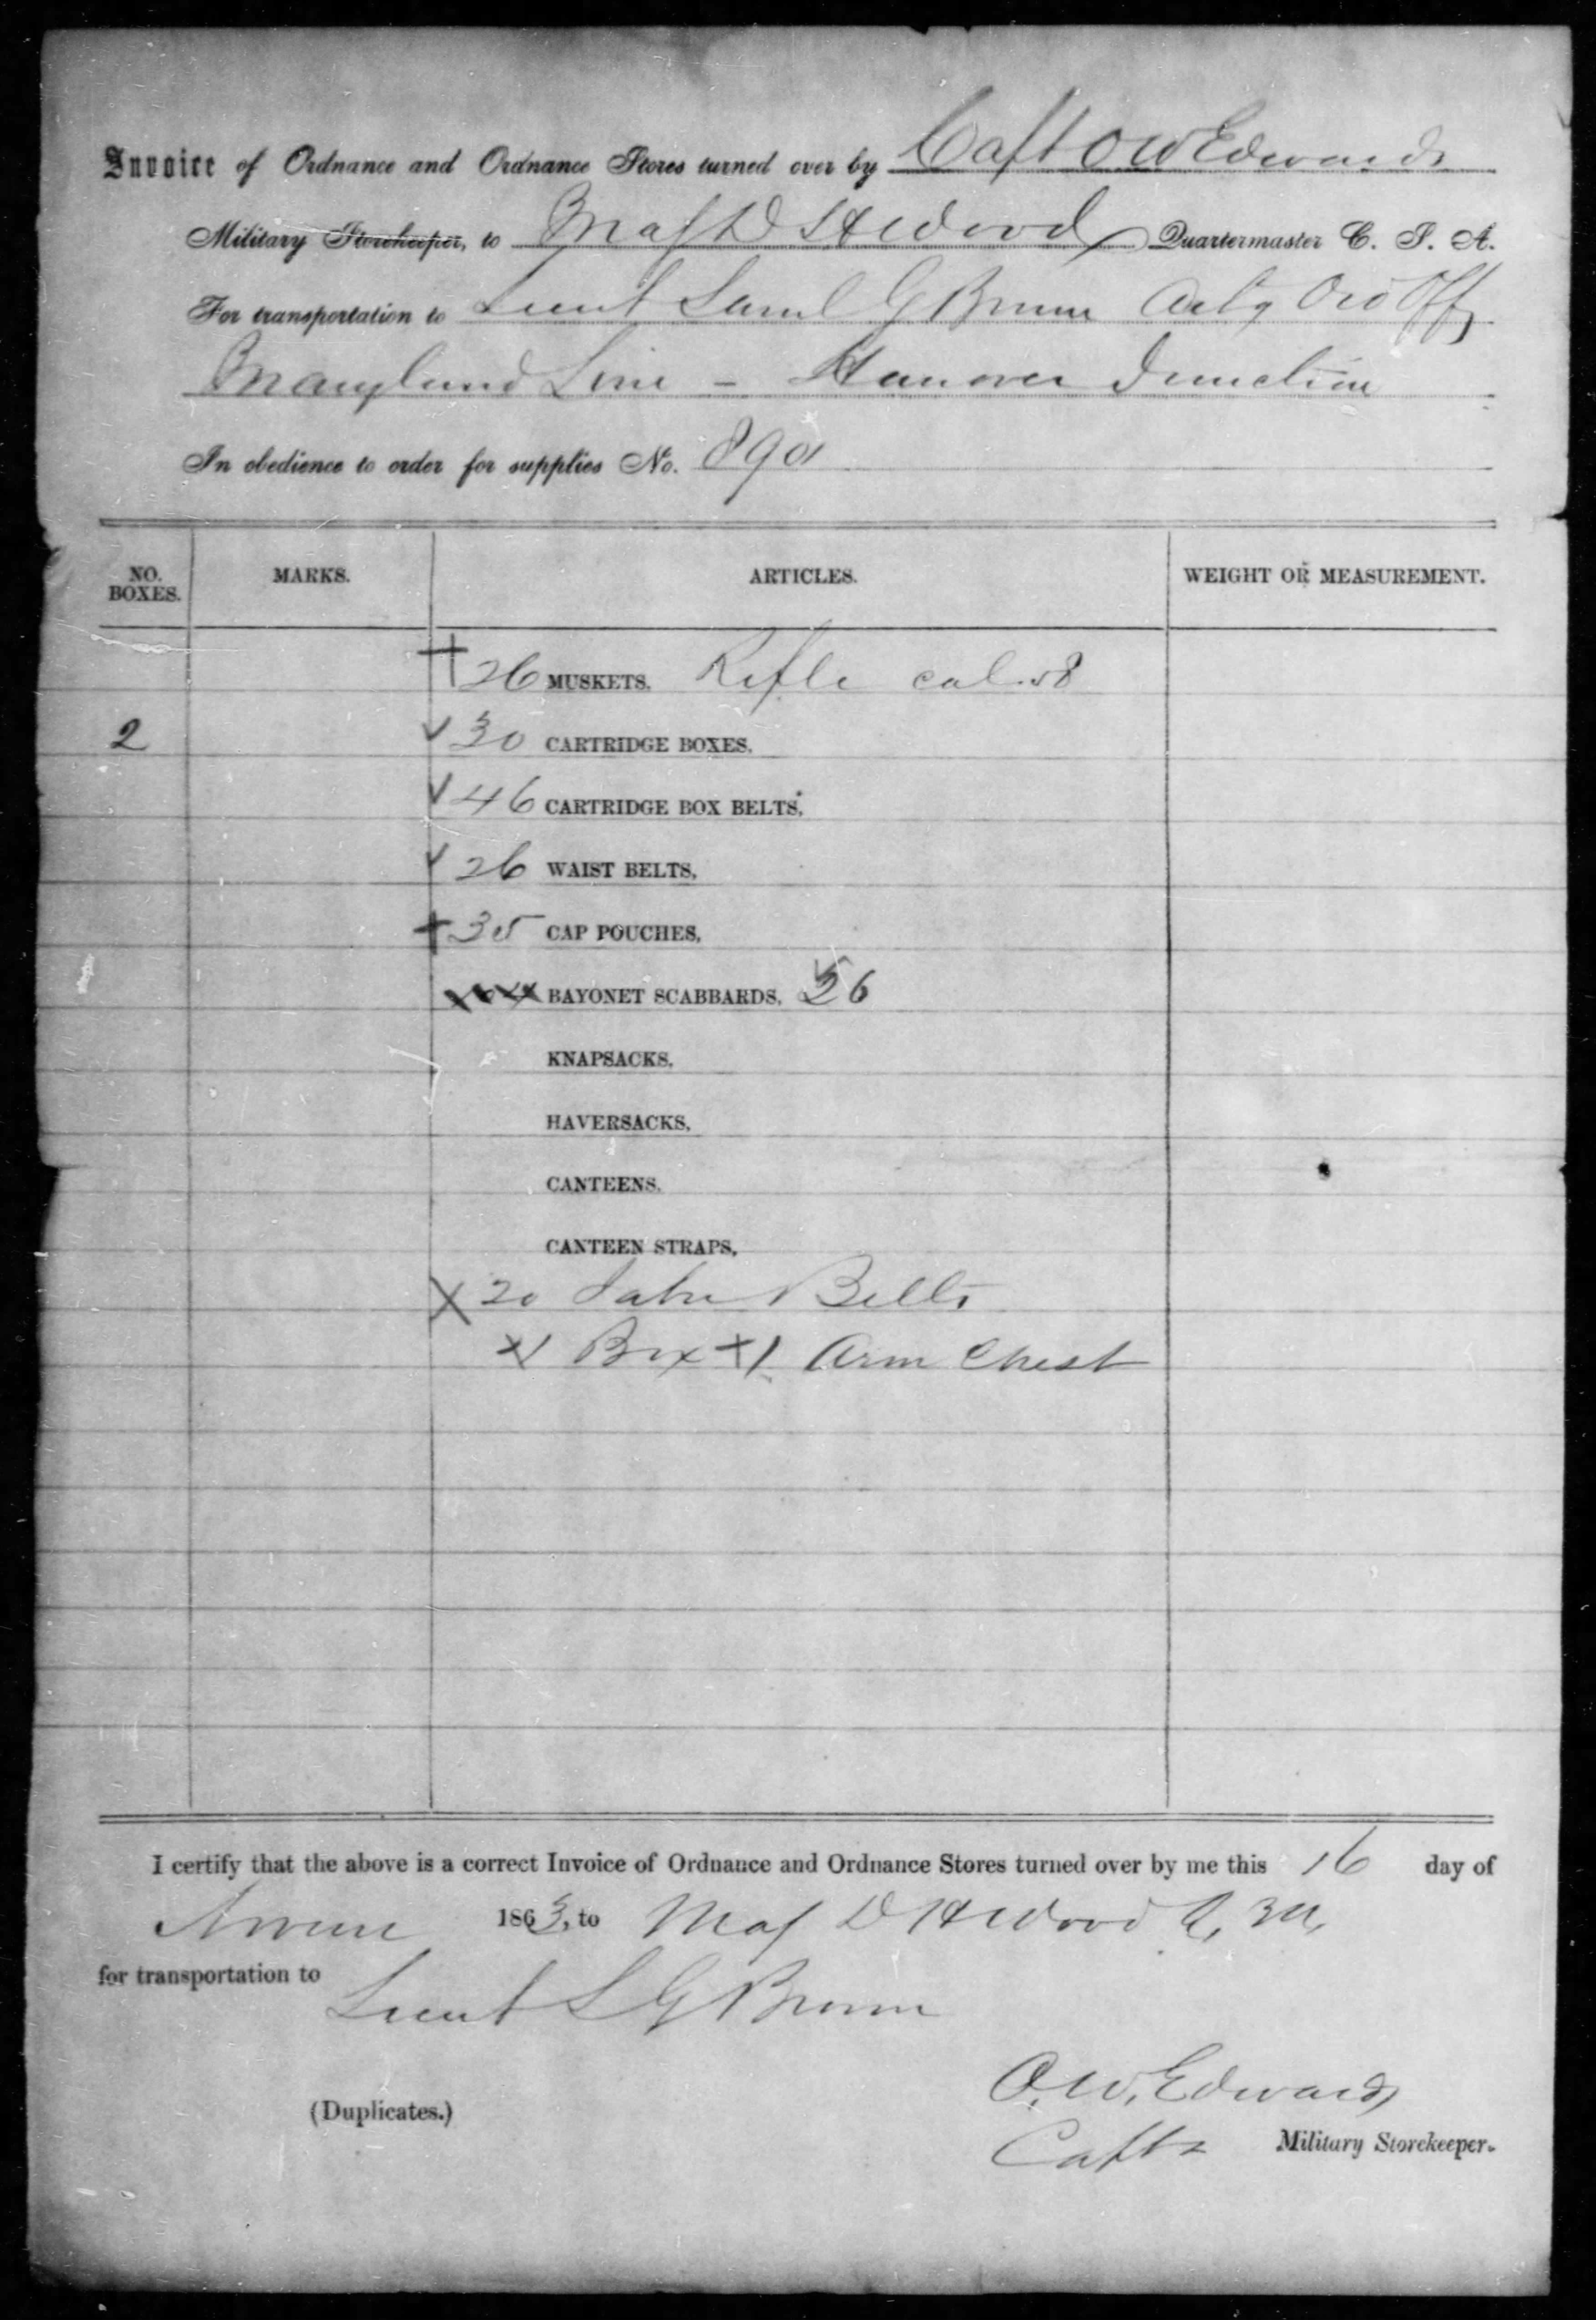 Invoice of Ordnance and Ordnance Stores turned over by Capt O W Edwards
Military Storekeeper, to Maj D H Wood Quartermaster C. S. A.
For transportation to Lieut Saml G Brown Actg Ord Off
Maryland Line - Hanover Junction
In obedience to order for supplies No. 890
NO. BOXES. MARKS. ARTICLES. WEIGHT OR MEASUREMENT.
+ 26 MUSKETS, Rifle cal .58
2 √ 30 CARTRIDGE BOXES,
√ 46 CARTRIDGE BOX BELTS,
√ 26 WAIST BELTS,
+ 35 CAP POUCHES,
BAYONET SCABBARDS, 56
KNAPSACKS,
HAVERSACKS,
CANTEENS,
CANTEEN STRAPS,
X 20 Sabre Belts
X 1 Box + 1 Arm Chest
I certify that the above is a correct Invoice of Ordnance and Ordnance Stores turned over by me this 16 day of
1863, to Maj D H Wood Q. M.
for transportation to
Lieut S G Brown
O. W. Edwards
(Duplicates.)
Capt Military Storekeeper.